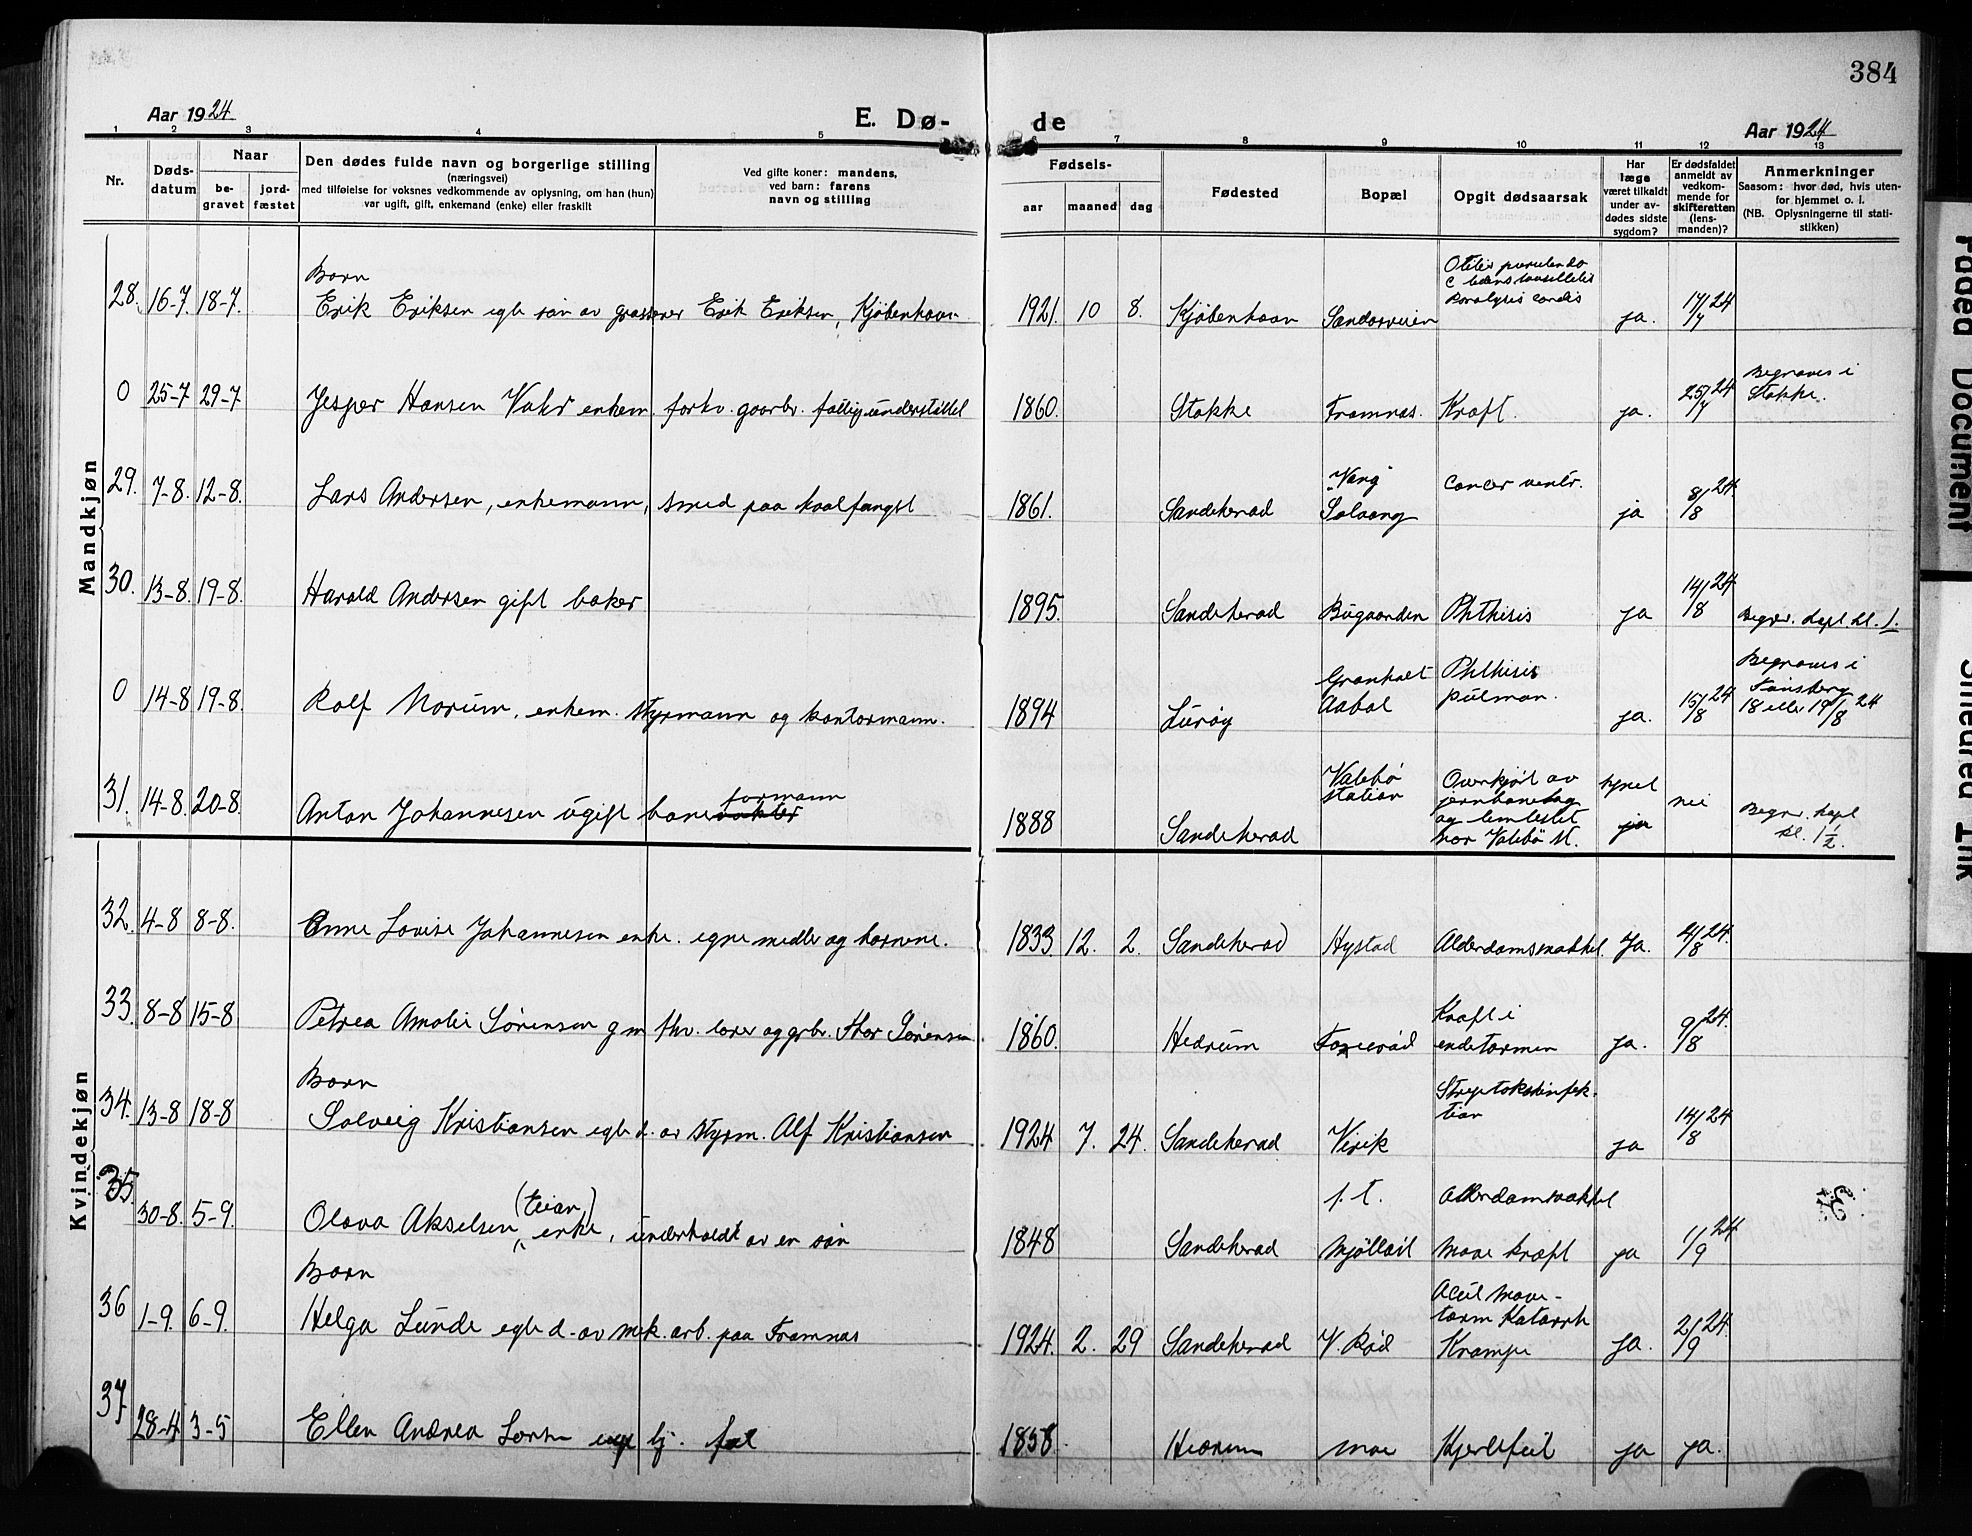 384
Aar 1924
E. Dø-
de
Aar 1924
1 2 3 4 5 6 7 8 9 10 11 12 13
Nr.
Døds-
datum
Naar
be-
gravet
jord-
fæstet
Den dødes fulde navn og borgerlige stilling
(næringsvei)
med tilføielse for voksnes vedkommende av oplysning, om han (hun)
var ugift, gift, enkemand (enke) eller fraskilt
Ved gifte koner: mandens,
ved barn: farens
navn og stilling
Fødsels-
aar
maaned
dag
Fødested
Bopæl
Opgit dødsaarsak
Har
læge
været tilkaldt
under av-
dødes sidste
sygdom?
Er dødsfaldet
anmeldt av
vedkom-
mende for
skifteretten
(lens-
manden)?
Anmerkninger
Saasom: hvor død, hvis uten-
for hjemmet o. l.
(NB. Oplysningerne til stati-
stikken)
Mandkjøn
Barn
28. 16-7. 18-7. Erik Eriksen egte søn av grosserer Erik Eriksen, Kjøbenhavn
1921. 10 8. Kjøbenhavn Sandarveien
Paralysis cordis
ja. 17/7 24
0 25-7 29-7 Jesper Hansen Vaker enkem. forhv. gaarbr. fattigunderstøttet
1860. Stokke Framnæs. Kræft. ja. 25/7 24 Begraves i
Stokke.
29. 7-8. 12-8. Lars Andersen, enkemann, smed paa hvalfangst
1861. Sandeherad Vang
Solvang cancer ventr. ja 8/8 24
30. 13-8. 19-8. Harald Andersen gift baker
1895. Sandeherad Bugaarden Phthisis ja 14/8 24 Begr. kapl. kl. 1.
0 14-8 19-8. Rolf Norum, enkem. styrmann og kontormann.
1894 Lurøy Granholt
Aabol Phthisis
pulmon. ja. 15/8 24 Begraves i
Tønsberg
18 eller 19/8 24
31. 14-8. 20-8. Anton Johannesen ugift baneformann
1888 Sandeherad Valebø
station Overkjørt av
jernbanetog
og lemlestet
nær Valebø st. synet
ja nei Begr. kapl
kl. 1½.
Kvindekjøn
32. 4-8 8-8. Anne Lovise Johannesen enke. egne midler og børnene.
1833 12. 2. Sandeherad Hystad Alderdomsvakkel. Ja. 4/8 24.
33. 8-8 15-8 Petrea Amalie Sørensen g m fhv. lærer og grbr. Thor Sørensen
1860. Hedrum Fozierød Kræft i
endetarmen ja. 9/8 24.
Barn
34. 13-8 18-8 Solveig Kristiansen egte d. av styrm. Alf Kristiansen
1924 7. 24. Sandeherad Virik Streptokokinfek-
tion ja 14/8 24
35. 30-8. 5-9. Olava Akselsen (Eian) enke, underholdt av en søn
1848 Sandeherad f. t.
Mjølløst Alderdomsvakkel
mave kræft ja 1/9 24
Barn
36 1-9. 6-9. Helga Lunde egte d. av mek. arb. paa Framnæs
1924. 2. 29 Sandeherad V. Rød Acut mave-
tarm Katarrh
Krampe ja. 2/9 24.
37 28-4 3-5 Ellen Andrea Larsen
1858. Hedrum Moe Hjertefeil ja ja.
Faded Document
Smeared Ink